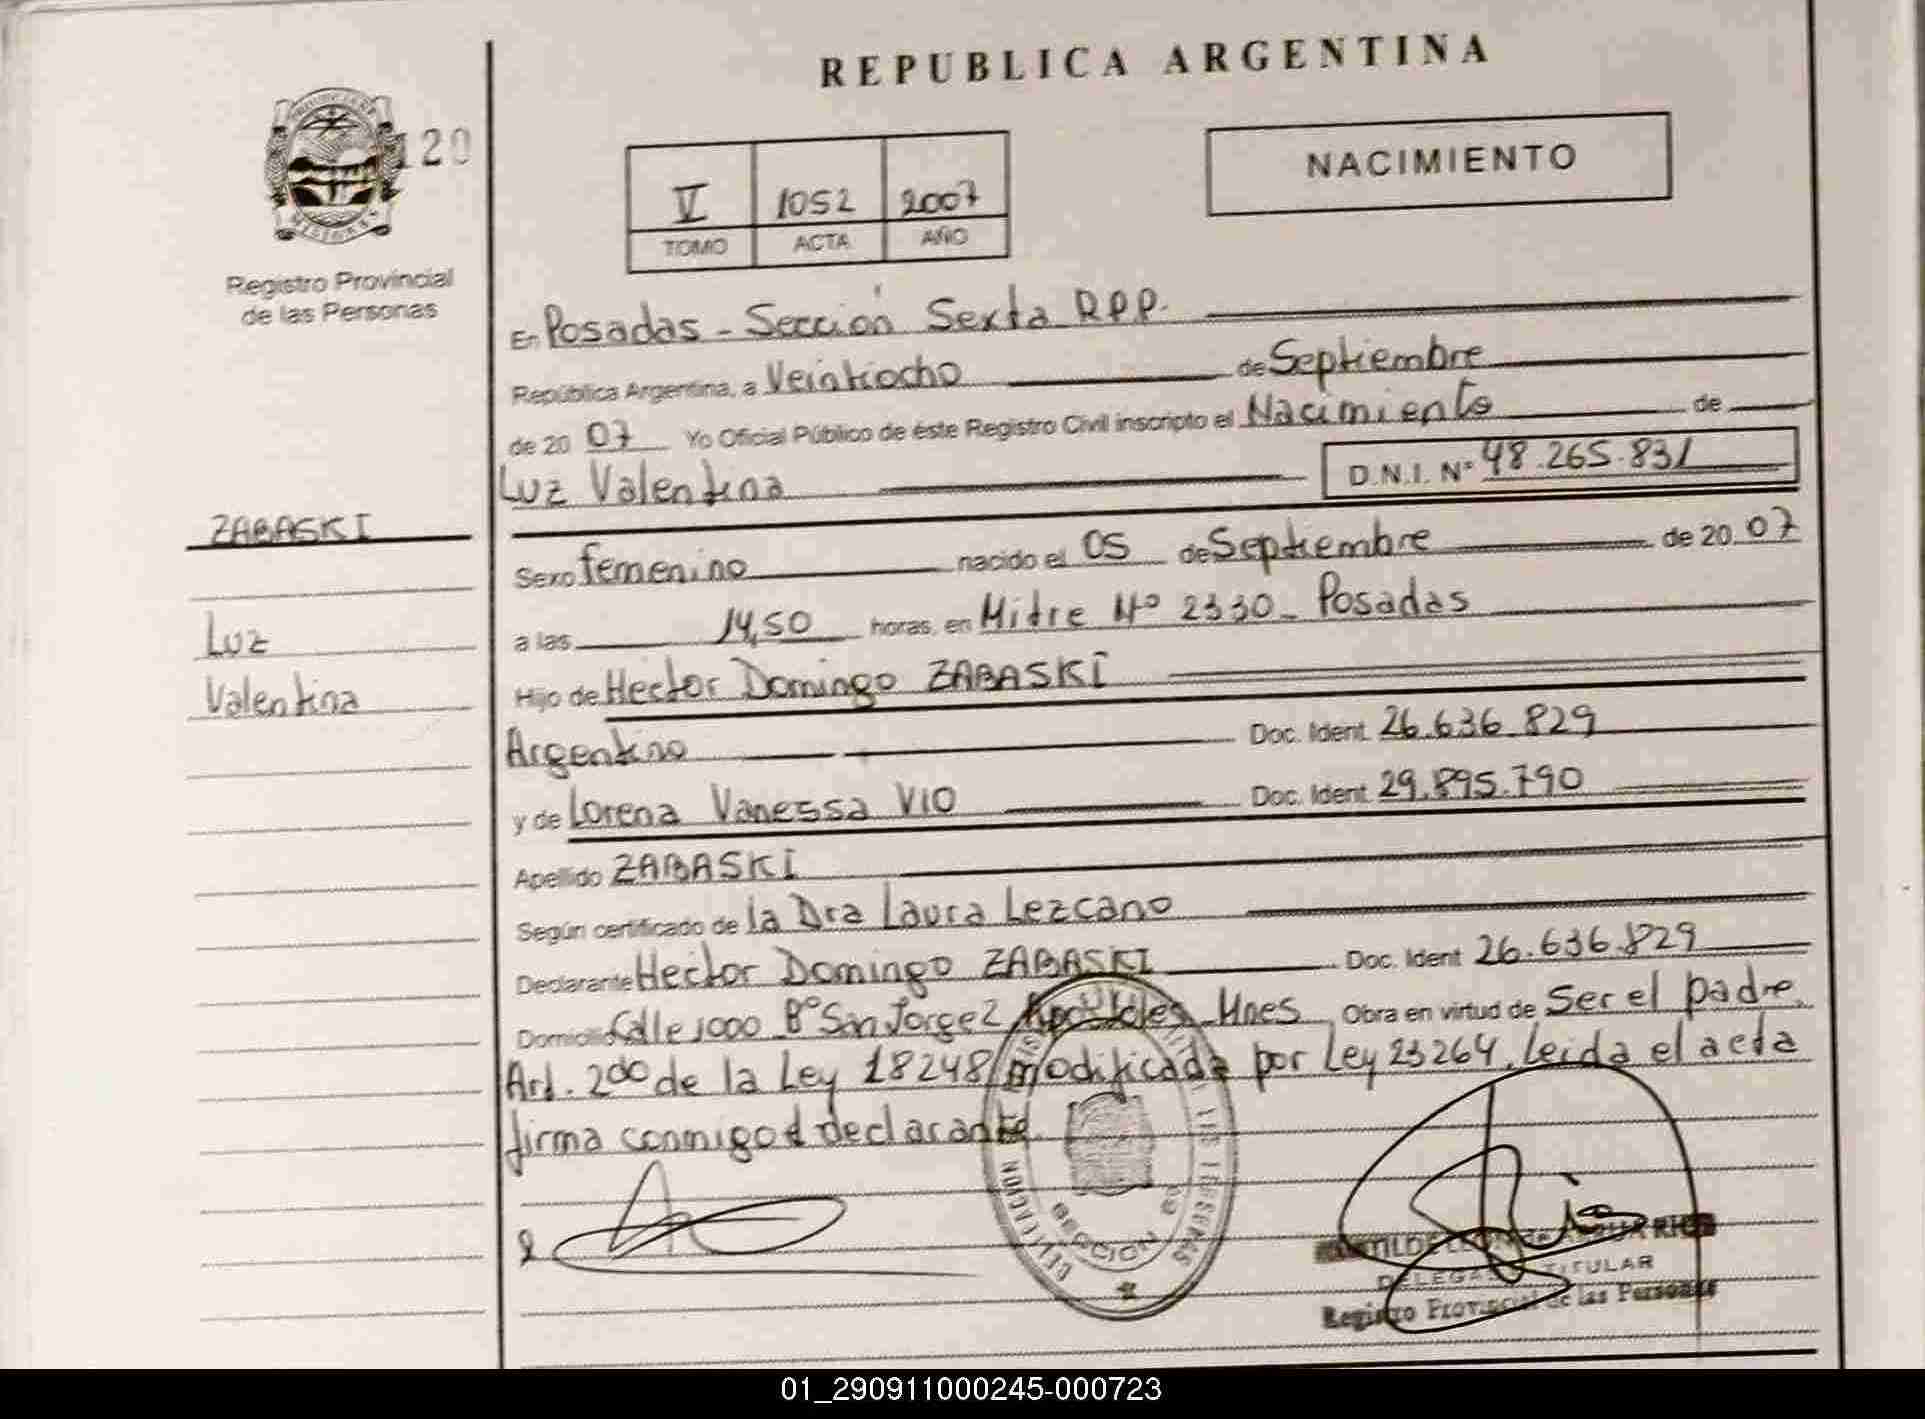 REPUBLICA ARGENTINA
120
V 1052 2007
TOMO ACTA AÑO
NACIMIENTO
MISIONES
Registro Provincial
de las Personas
En Posadas - Sección Sexta R.P.P.
República Argentina, a Veintiocho de Septiembre
de 20 07 Yo Oficial Público de éste Registro Civil inscripto el Nacimiento de
Luz Valentina D.N.I. Nº 48.265.831
ZABASKI
Sexo femenino nacido el 05 de Septiembre de 20 07
Luz
a las 14,50 horas, en Mitre Nº 2330 - Posadas
Valentina
Hijo de Hector Domingo ZABASKI
Argentino Doc. Ident. 26.636.829
y de Lorena Vanessa VIO Doc. Ident. 29.895.790
Apellido ZABASKI
Según certificado de la Dra Laura Lezcano
Declarante Hector Domingo ZABASKI Doc. Ident 26.636.829
Domicilio Calle 1000 Bº San Jorge 2 Apóstoles Mnes Obra en virtud de Ser el padre.
Art. 2do de la Ley 18248 modificada por Ley 23264. Leida el acta
firma conmigo el declarante.
SECCION 6a
DELEGADA TITULAR
Registro Provincial de las Personas
01_290911000245-000723